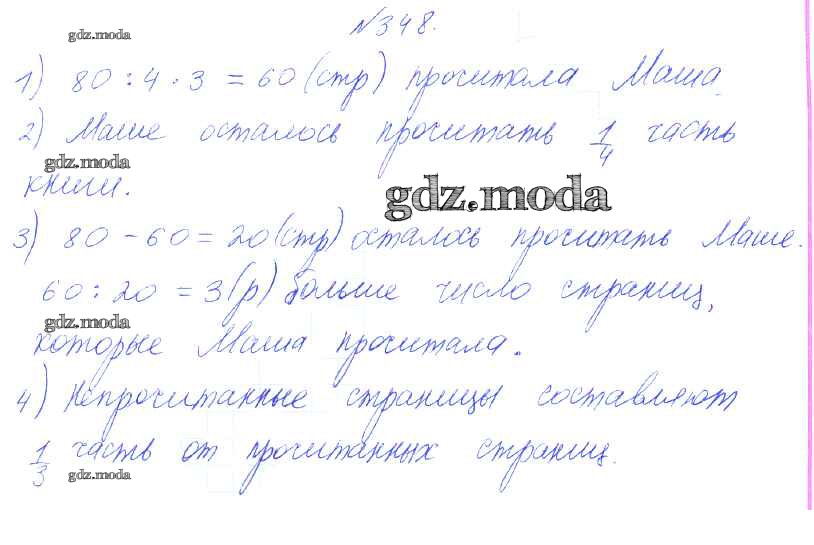 №348.
gdz.moda
1) 80 : 4 · 3 = 60 (стр) прочитала Маша.
2) Маше осталось прочитать 1/4 часть
gdz.moda
книги.
gdz.moda
3) 80 - 60 = 20 (стр) осталось прочитать Маше.
60 : 20 = 3 (р) больше число страниц,
gdz.moda
которые Маша прочитала.
4) Непрочитанные страницы составляют
1/3 часть от прочитанных страниц.
gdz.moda